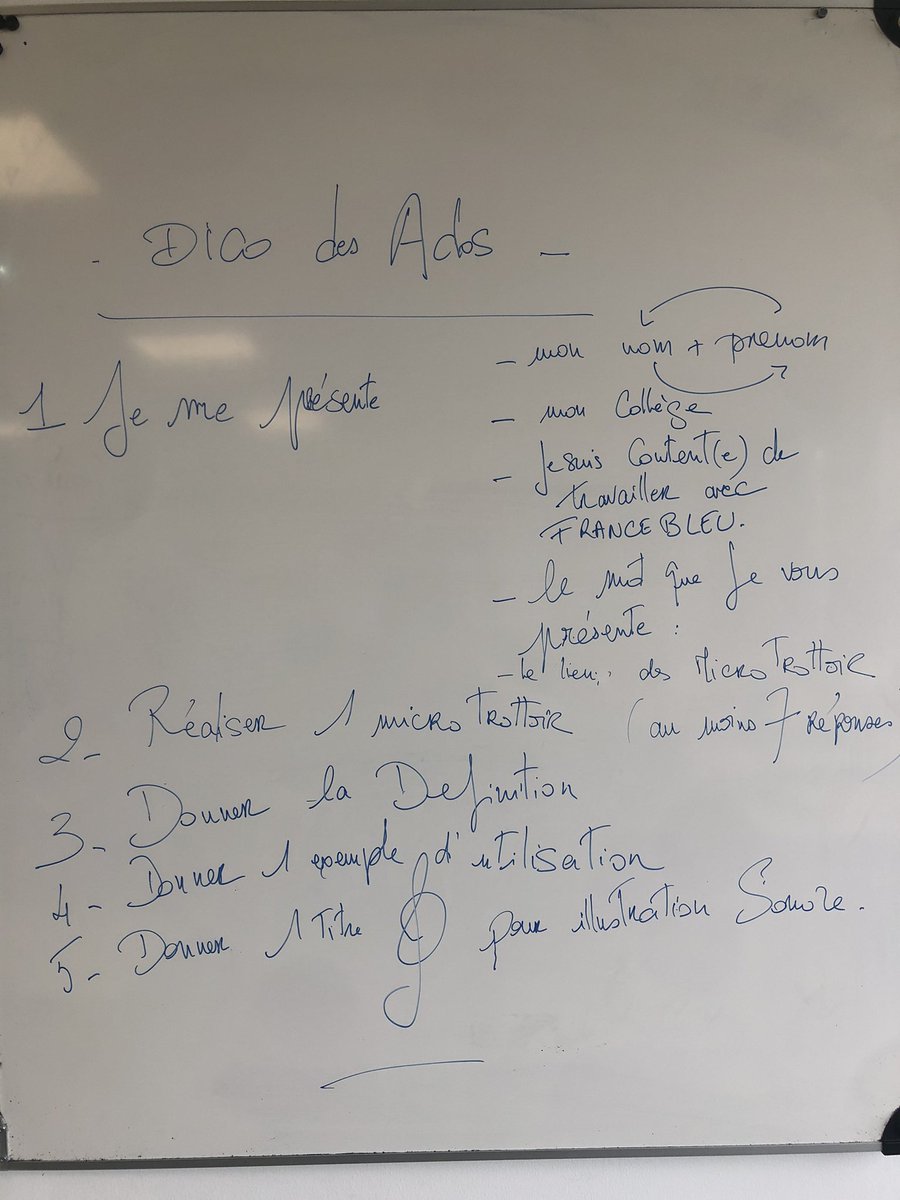 - Dico des Ados -
1 Je me présente
- mon nom + prenom
- mon Collège
- Je suis Content(e) de
travailler avec
FRANCE BLEU.
- le mot que Je vous
présente :
- le lieu, des Micro Trottoir
2- Réaliser 1 micro Trottoir (au moins 7 réponses
3- Donner la Definition
4- Donner 1 exemple d'utilisation
5- Donner 1 Titre pour illustration Sonore.